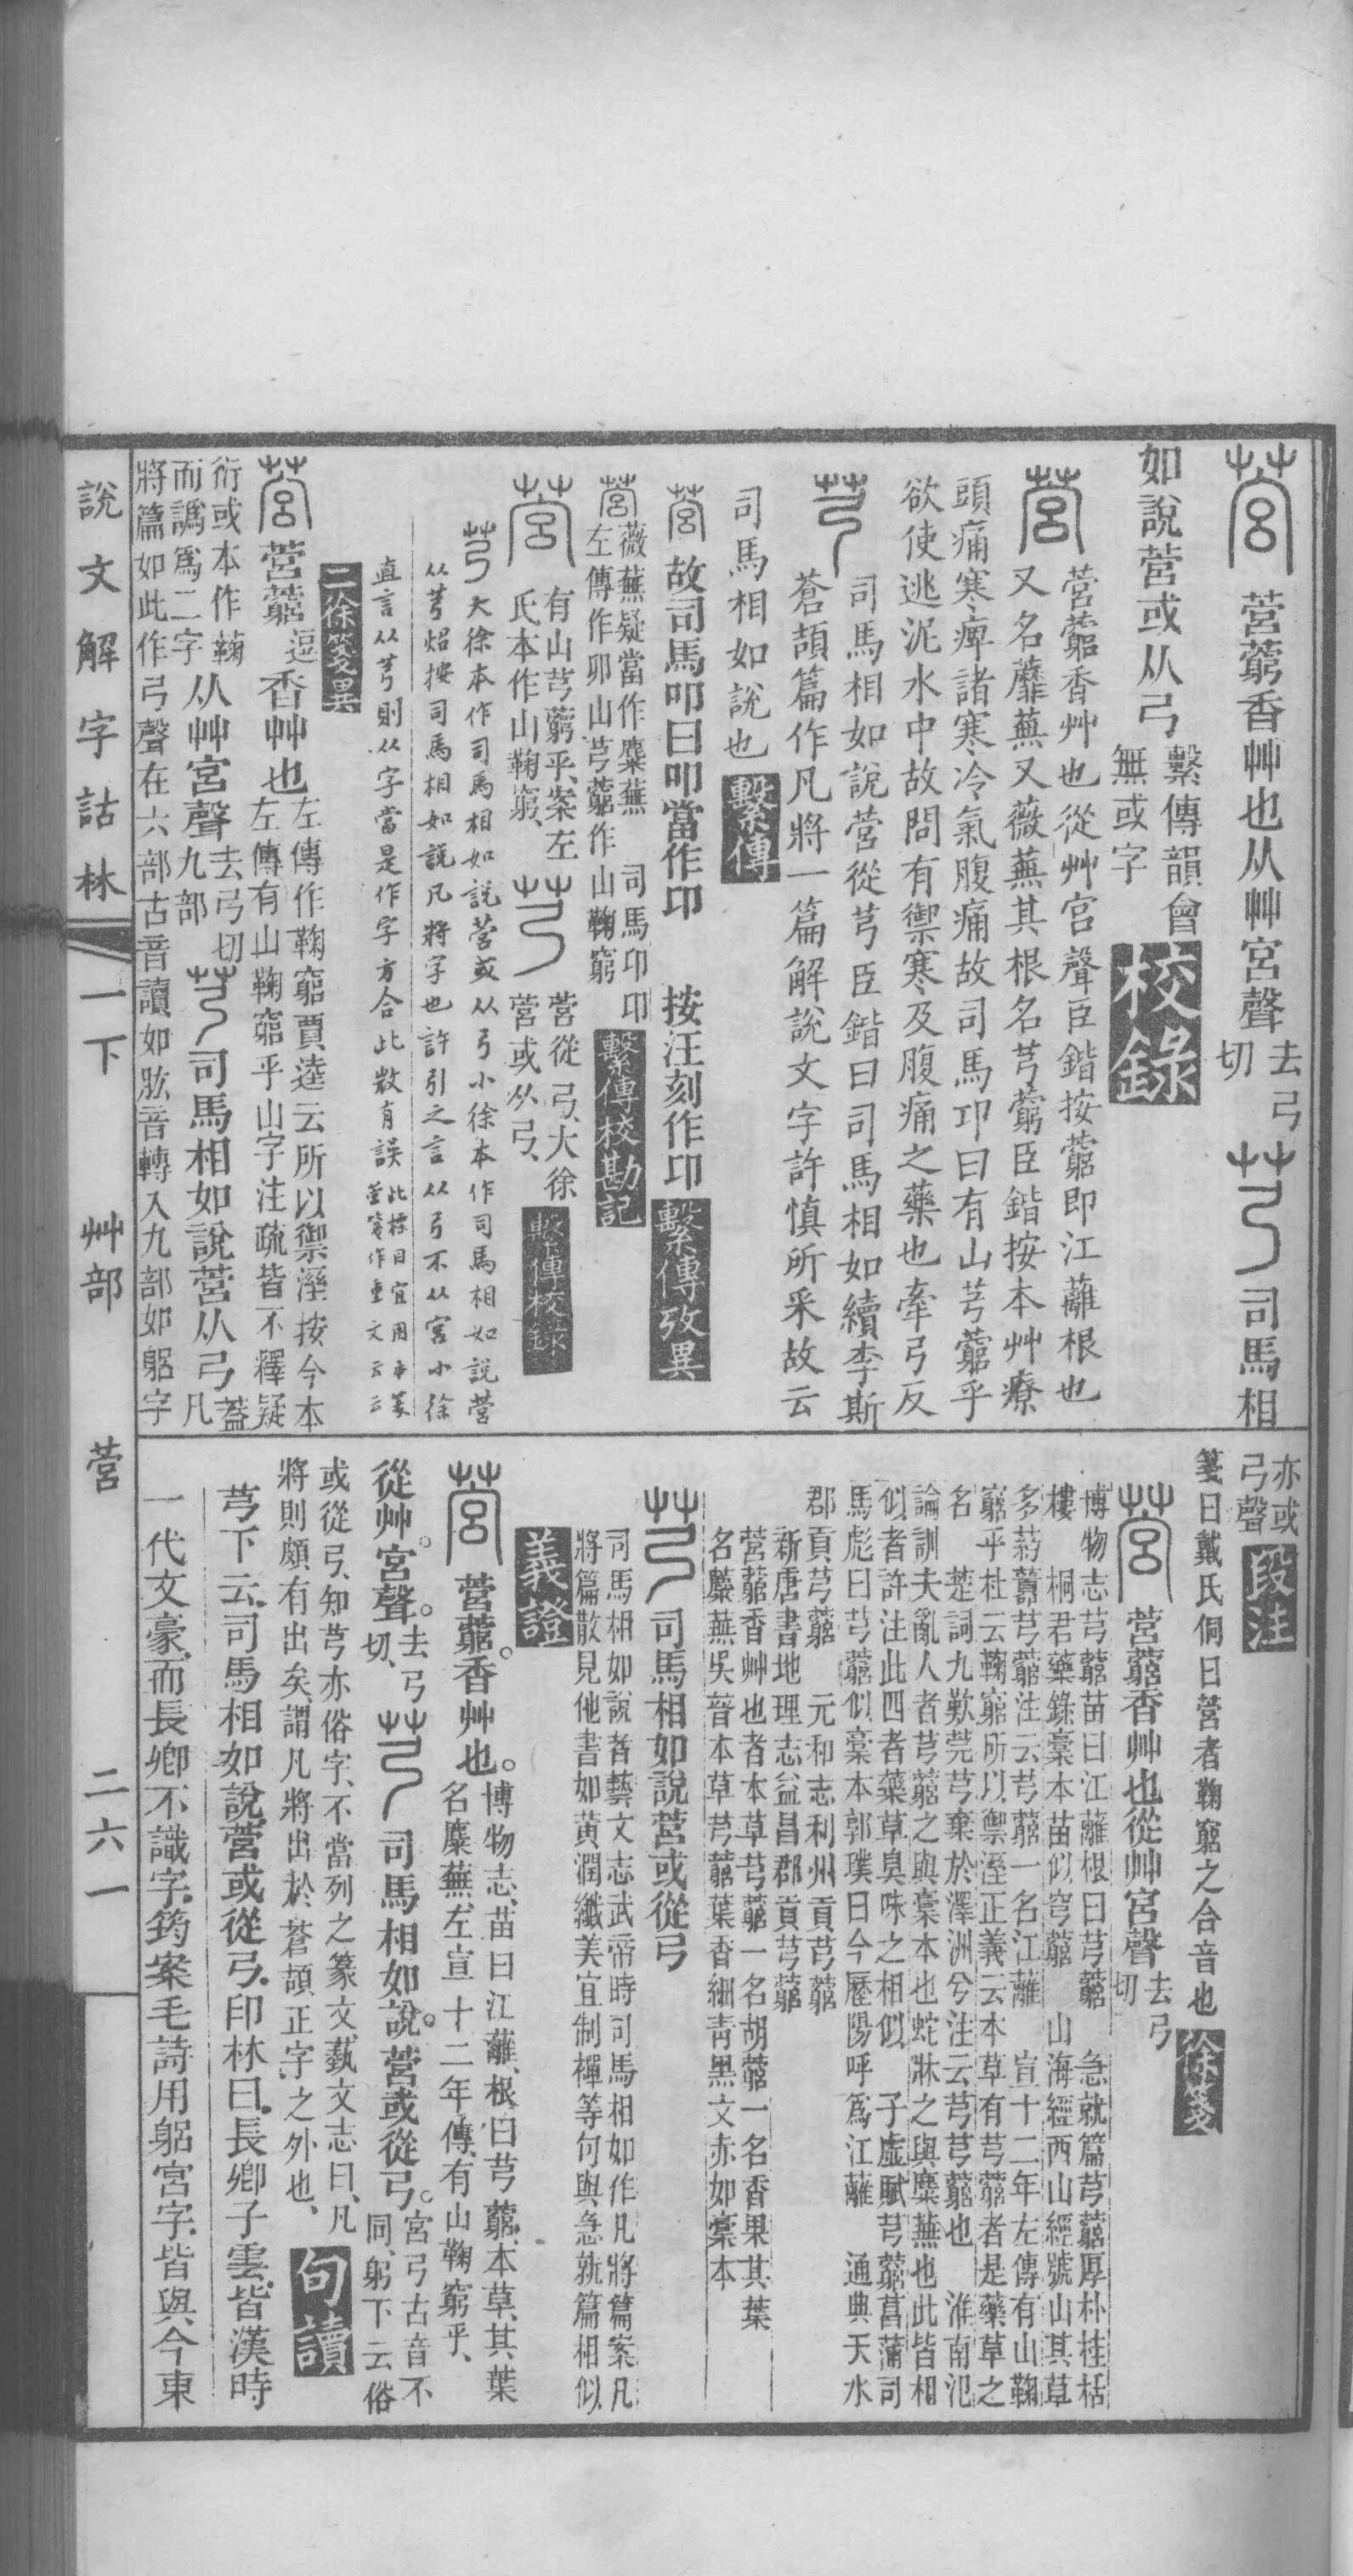 營 營藭香艸也从艸宮聲去弓切 芎 司馬相
如說營或从弓繫傳韻會無或字 校錄
營 營藭香艸也從艸宮聲臣鍇按藭即江蘺根也
又名蘼蕪又薇蕪其根名芎藭臣鍇按本艸療
頭痛寒痺諸寒冷氣腹痛故司馬卭曰有山芎藭乎
欲使逃泥水中故問有禦寒及腹痛之藥也牽弓反
芎 司馬相如說營從芎臣鍇曰司馬相如續李斯
蒼頡篇作凡將一篇解說文字許慎所采故云
司馬相如說也 繫傳
營 故司馬卭曰卭當作印 按汪刻作卬 繫傳攷異
營 薇蕪疑當作蘪蕪 司馬卬卭
左傳作卯山芎藭作山鞠窮 繫傳校勘記
營 有山芎藭乎、案左氏本作山鞠窮、 芎 營從弓、大徐營或从弓、 繫傳校錄
芎 大徐本作司馬相如說營或从弓小徐本作司馬相如說營
从芎炤按司馬相如說凡將字也許引之言从弓不从宮小徐
直言从芎則从字當是作字方合此㪚有誤
二徐箋異
營 營藭逗香艸也左傳作鞠窮賈逵云所以禦溼按今本左傳有山鞠窮乎山字注疏皆不釋疑
衍或本作鞠而譌爲二字从艸宮聲去弓切九部 芎 司馬相如說營从弓蓋凡
將篇如此作弓聲在六部古音讀如肱音轉入九部如躳字
說文解字詁林 一下 艸部 營 二六一
亦或弓聲 段注
箋曰戴氏侗曰營者鞠窮之合音也 徐箋
營 營藭香艸也從艸宮聲去弓切
博物志芎藭苗曰江蘺根曰芎藭 急就篇芎藭厚朴桂栝
樓 桐君藥錄稾本苗似穹藭 山海經西山經號山其草
多葯蘬芎藭注云芎藭一名江蘺 宣十二年左傳有山鞠
窮乎杜云鞠窮所以禦溼正義云本草有芎藭者是藥草之
名 楚詞九歎莞芎棄於澤洲兮注云芎芎藭也 淮南氾
論訓夫亂人者芎藭之與稾本也蛇牀之與蘪蕪也此皆相
似者許注此四者藥草臭味之相似 子虛賦芎藭菖蒲司
馬彪曰芎藭似稾本郭璞曰今歷陽呼爲江蘺 通典天水
郡貢芎藭 元和志利州貢芎藭
新唐書地理志益昌郡貢芎藭
營藭香艸也者本草芎藭一名胡藭一名香果其葉
名蘪蕪吳普本草芎藭葉香細靑黑文赤如稾本
芎 司馬相如說營或從弓
司馬相如說者藝文志武帝時司馬相如作凡將篇案凡
將篇散見他書如黃潤纖美宜制襌等句與急就篇相似
義證
營 營藭。香艸也。博物志、苗曰江蘺、根曰芎藭、本草、其葉名蘪蕪、左宣十二年傳、有山鞠窮乎、
從艸。宮聲。去弓切、 芎 司馬相如說。營或從弓。宮弓古音不同、躬下云俗
或從弓、知芎亦俗字、不當列之篆文、藝文志曰、凡將則頗有出矣、謂凡將出於蒼頡正字之外也、 句讀
芎下云、司馬相如說、營或從弓、印林曰、長卿子雲、皆漢時
一代文豪、而長卿不識字、筠案毛詩用躳宮字、皆與今東